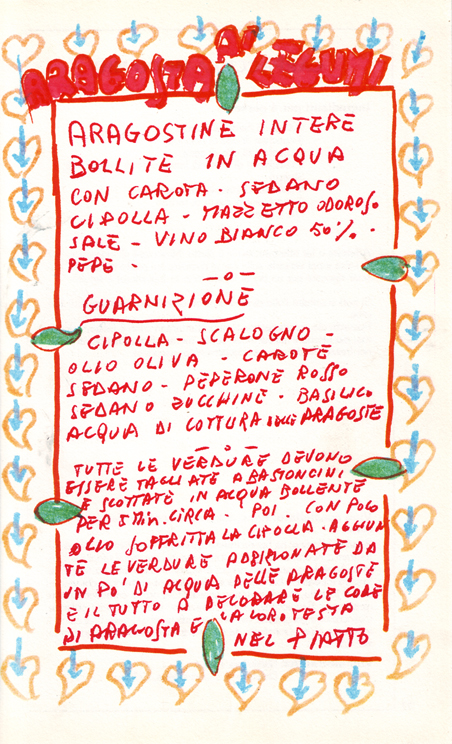 ARAGOSTA AI LEGUMI
ARAGOSTINE INTERE
BOLLITE IN ACQUA
CON CAROTA - SEDANO
CIPOLLA - MAZZETTO ODOROSO
SALE - VINO BIANCO 50% -
PEPE -
GUARNIZIONE
CIPOLLA - SCALOGNO -
OLIO OLIVA - CAROTE
SEDANO - PEPERONE ROSSO
SEDANO ZUCCHINE - BASILICO
ACQUA DI COTTURA DELLE ARAGOSTE
TUTTE LE VERDURE DEVONO
ESSERE TAGLIATE A BASTONCINI
E SCOTTATE IN ACQUA BOLLENTE
PER 5 Min. CIRCA - POI - CON POCO
OLIO SOFFRITTA LA CIPOLLA - AGGIUN
TE LE VERDURE ADDIZIONATE DA
UN PO' DI ACQUA DELLE ARAGOSTE
E IL TUTTO A DECORARE LE CODE
DI ARAGOSTA E LA LORO TESTA
NEL PIATTO